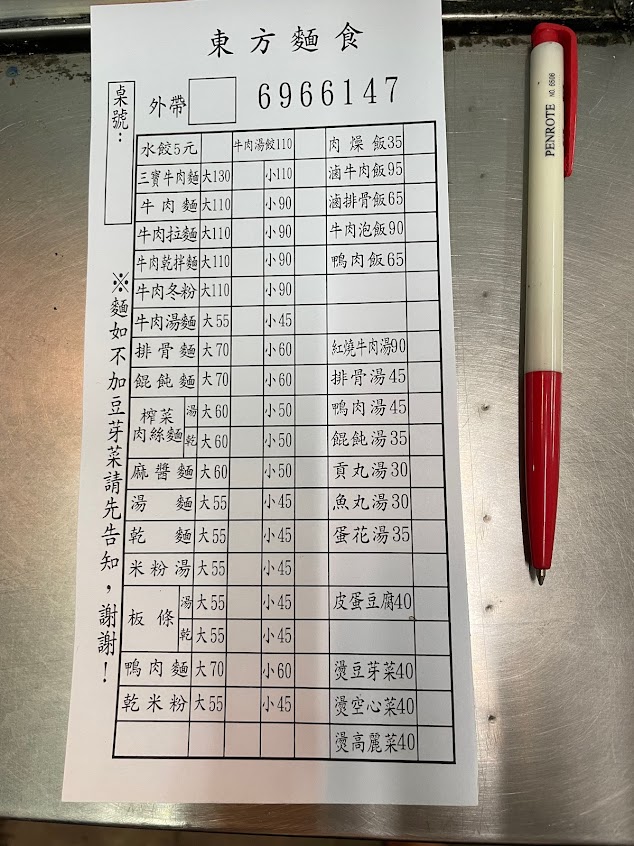 東方麵食
桌號：
外帶 6966147
水餃5元 牛肉湯餃110 肉燥飯35
三寶牛肉麵 大130 小110 滷牛肉飯95
牛肉麵 大110 小90 滷排骨飯65
牛肉拉麵 大110 小90 牛肉泡飯90
牛肉乾拌麵 大110 小90 鴨肉飯65
牛肉冬粉 大110 小90
牛肉湯麵 大55 小45
排骨麵 大70 小60 紅燒牛肉湯90
餛飩麵 大70 小60 排骨湯45
榨菜肉絲麵 湯 大60 小50 鴨肉湯45
乾 大60 小50 餛飩湯35
麻醬麵 大60 小50 貢丸湯30
湯麵 大55 小45 魚丸湯30
乾麵 大55 小45 蛋花湯35
米粉湯 大55 小45
板條 湯 大55 小45 皮蛋豆腐40
乾 大55 小45
鴨肉麵 大70 小60 燙豆芽菜40
乾米粉 大55 小45 燙空心菜40
燙高麗菜40
※麵如不加豆芽菜請先告知，謝謝！
PENROTE NO. 6506